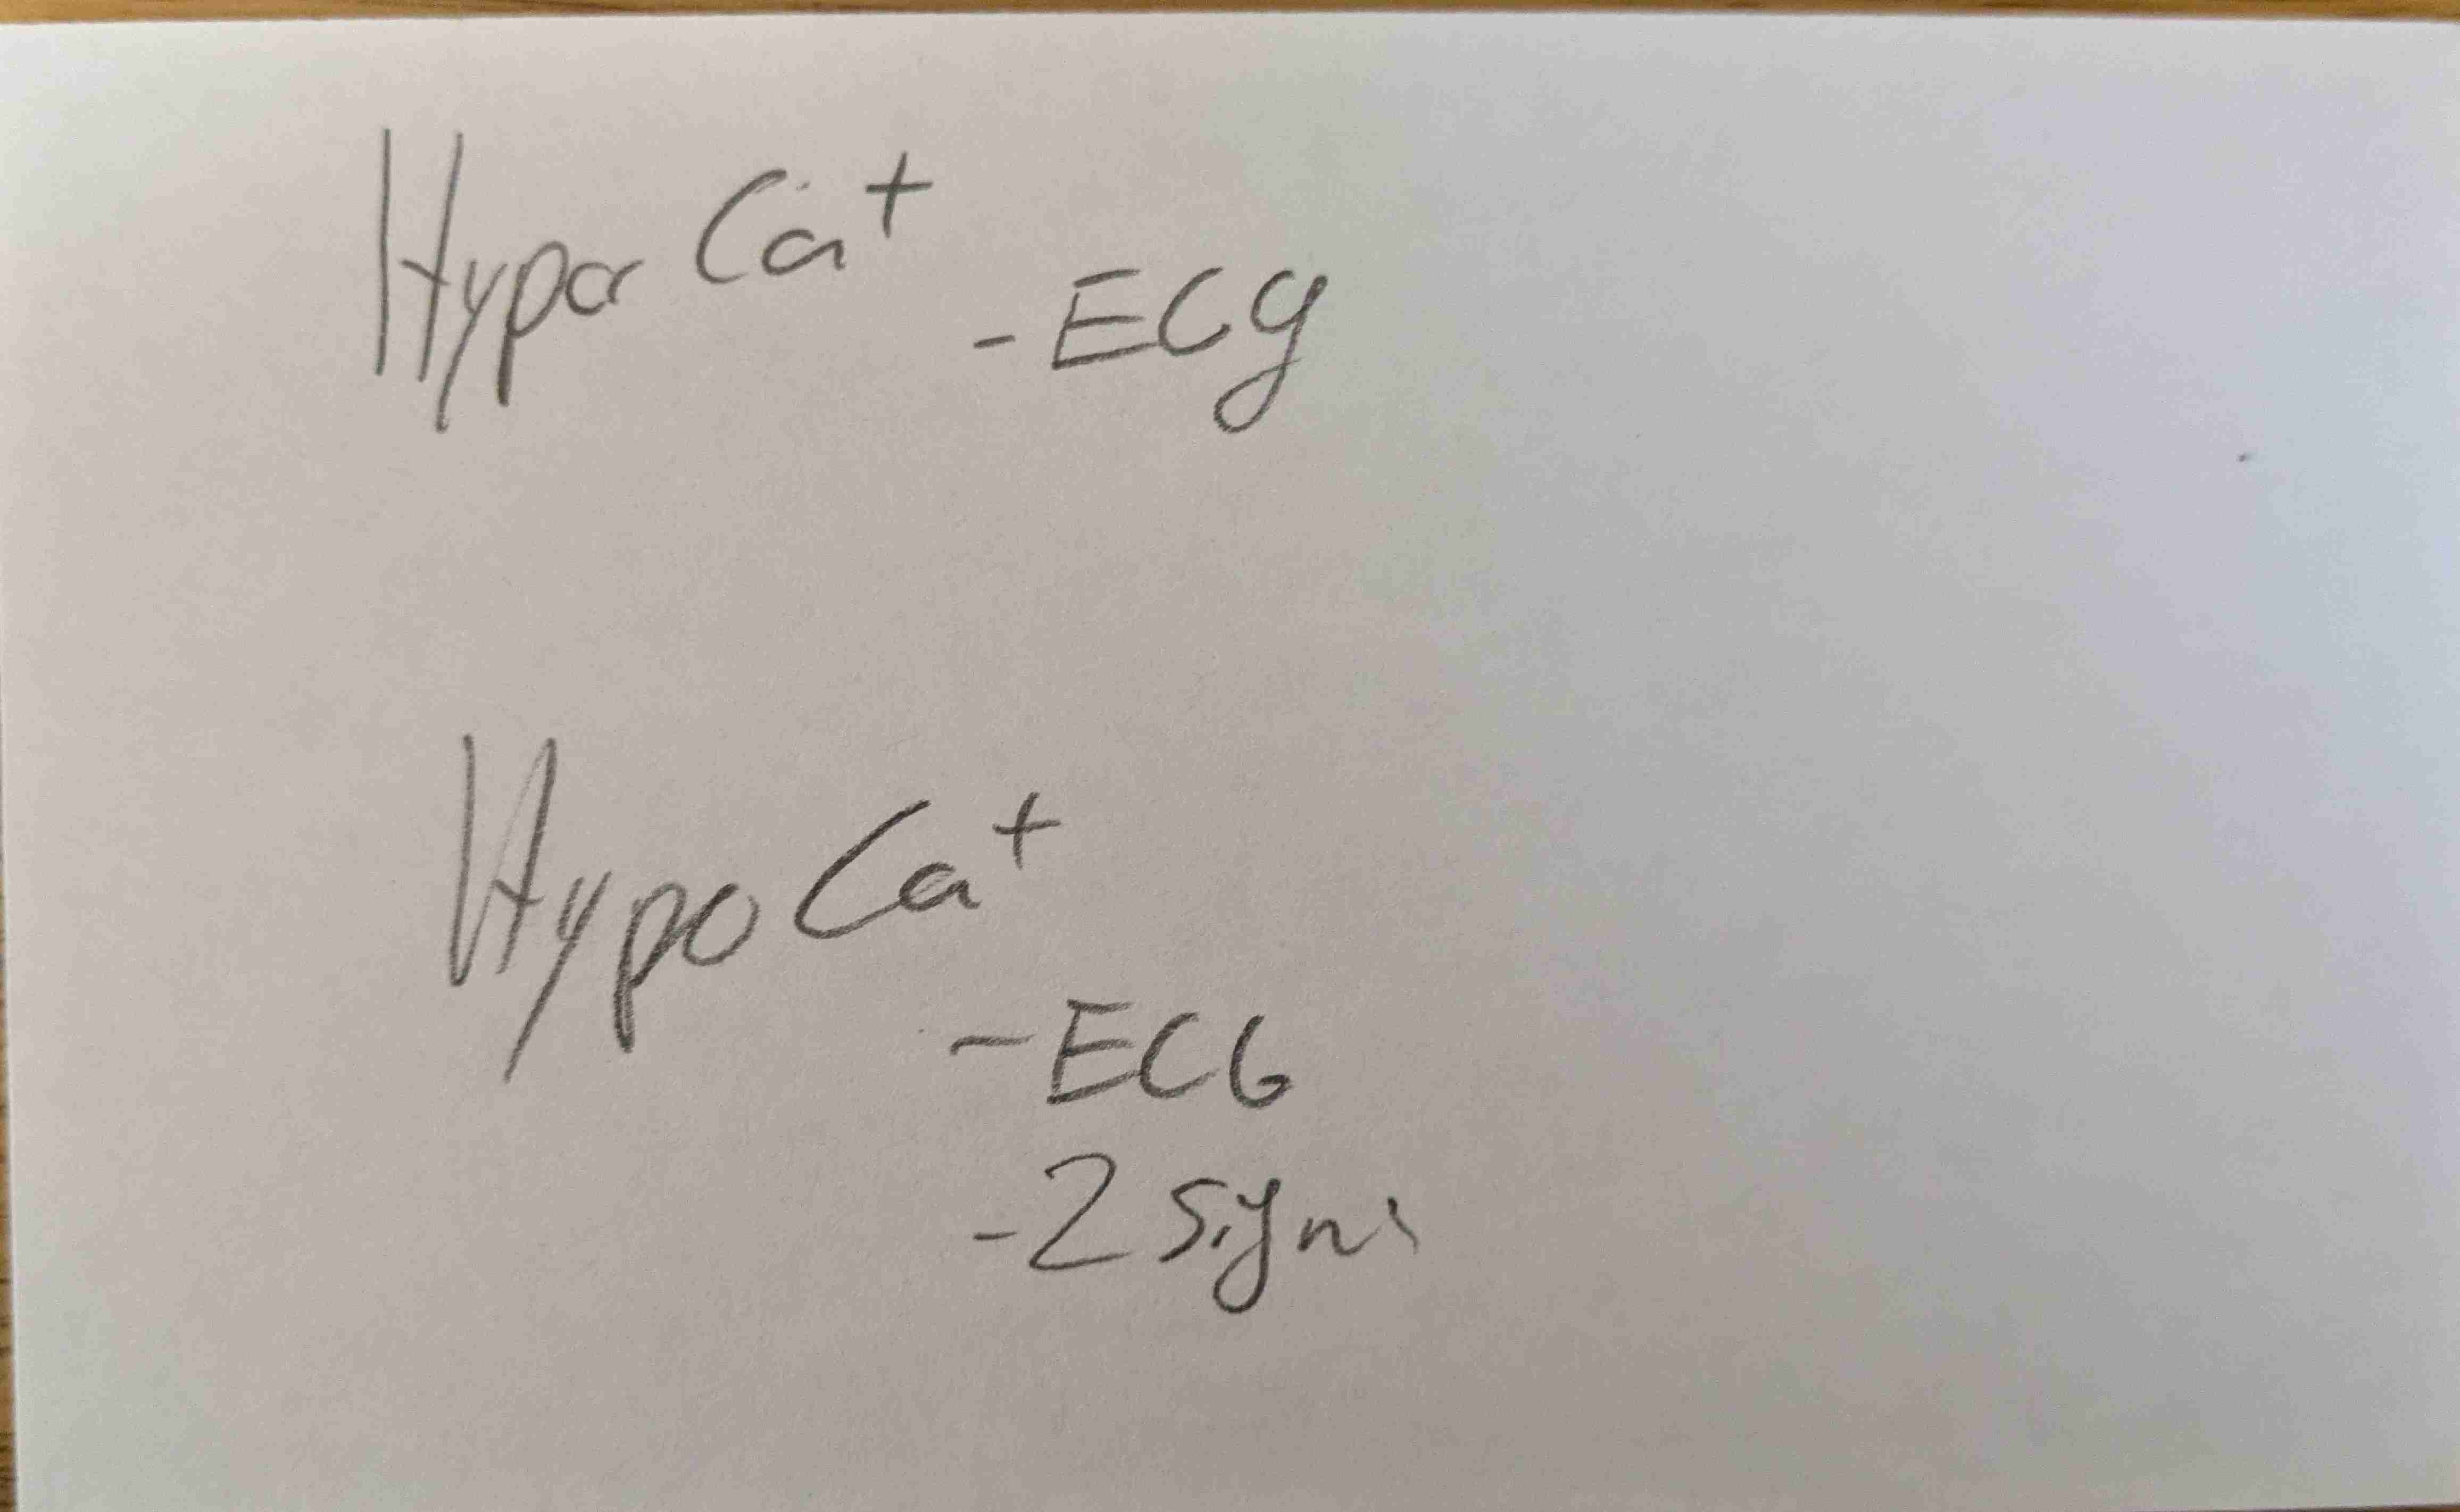 Hyper Ca+
- ECg
Hypo Ca+
- ECG
- 2 signs